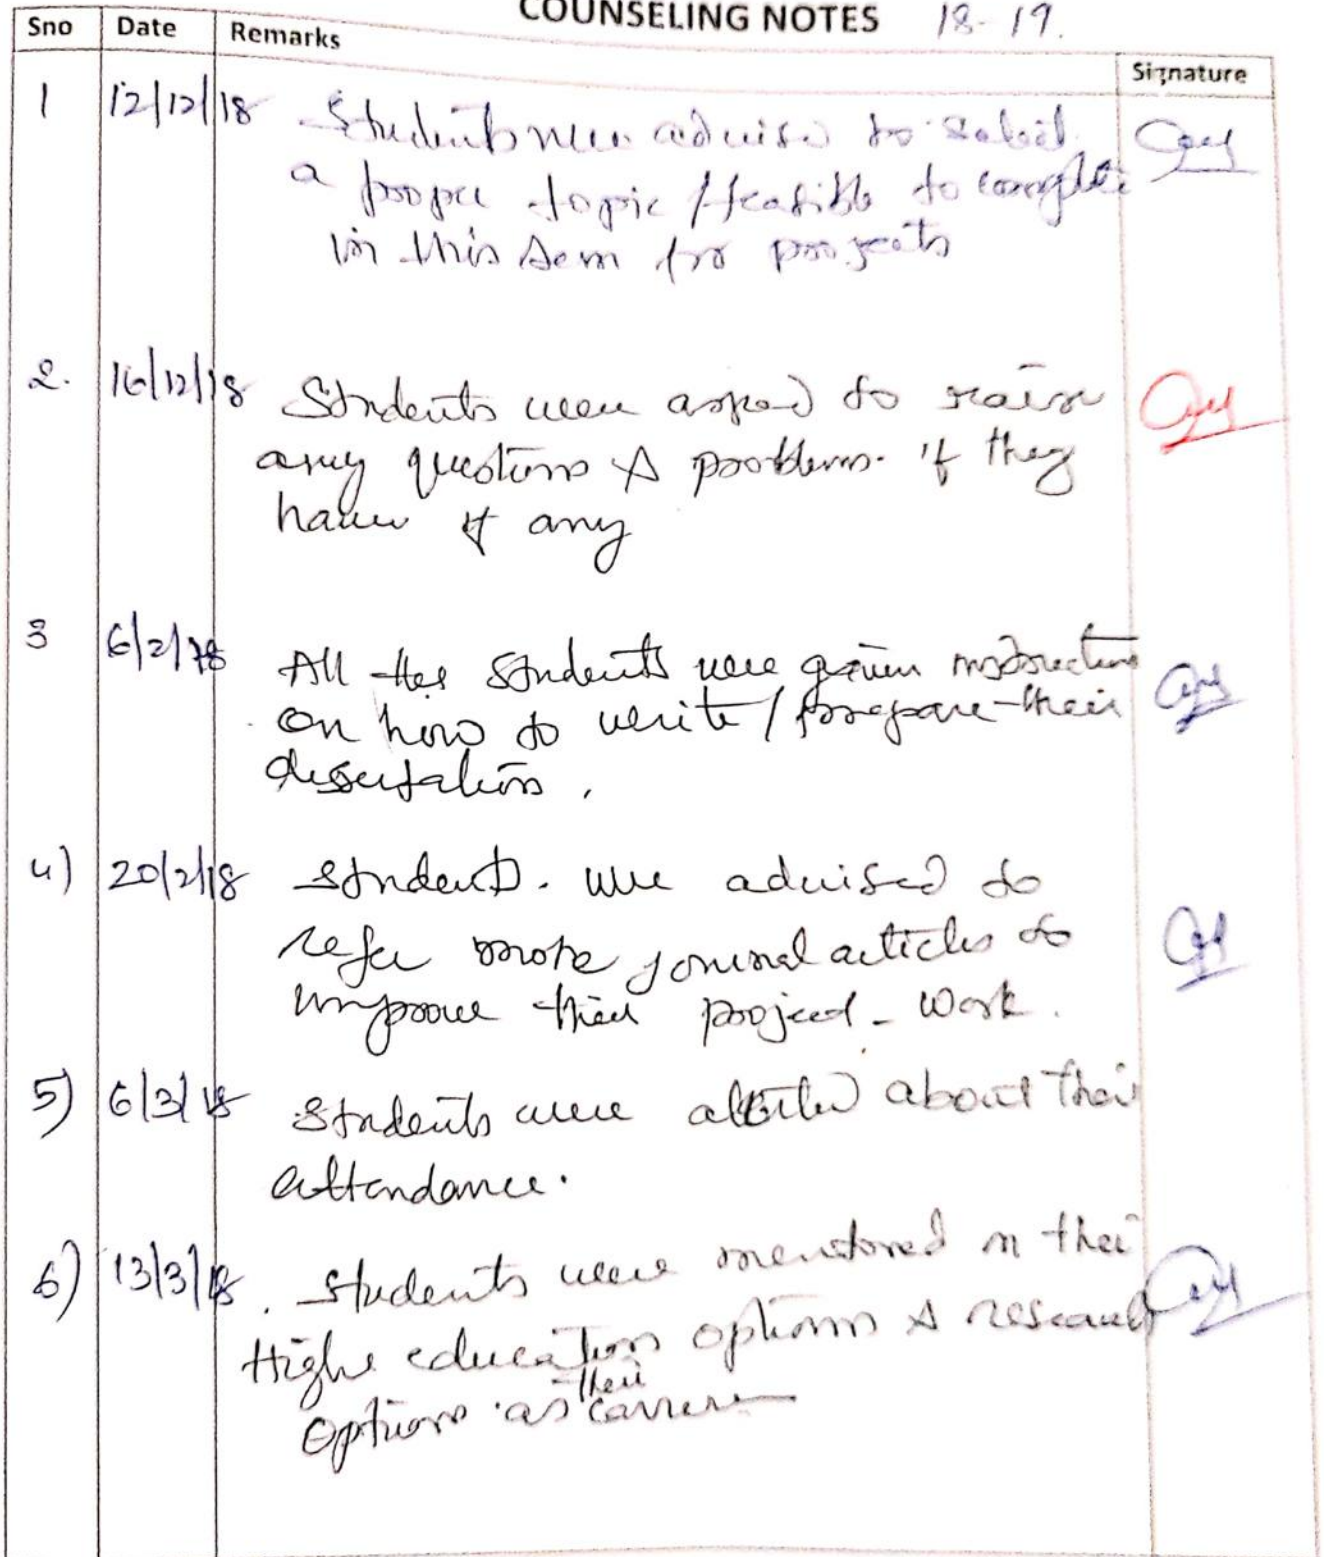 COUNSELING NOTES 18-19.
Sno Date Remarks Signature
1 12/12/18 Students were advised to select
a proper topic /feasible to complete
in this sem for projects
2. 16/12/18 Students were asked to raise
any questions & problems. if they
have if any
3 6/2/18 All the students were given instructions
on how to write/prepare their
dissertation.
4) 20/2/18 Students. were advised to
refer more journal articles to
improve their project-work.
5) 6/3/18 Students were about their
attendance.
6) 13/3/18. Students were mentored on their
Highe education options & research
their
options as carrere